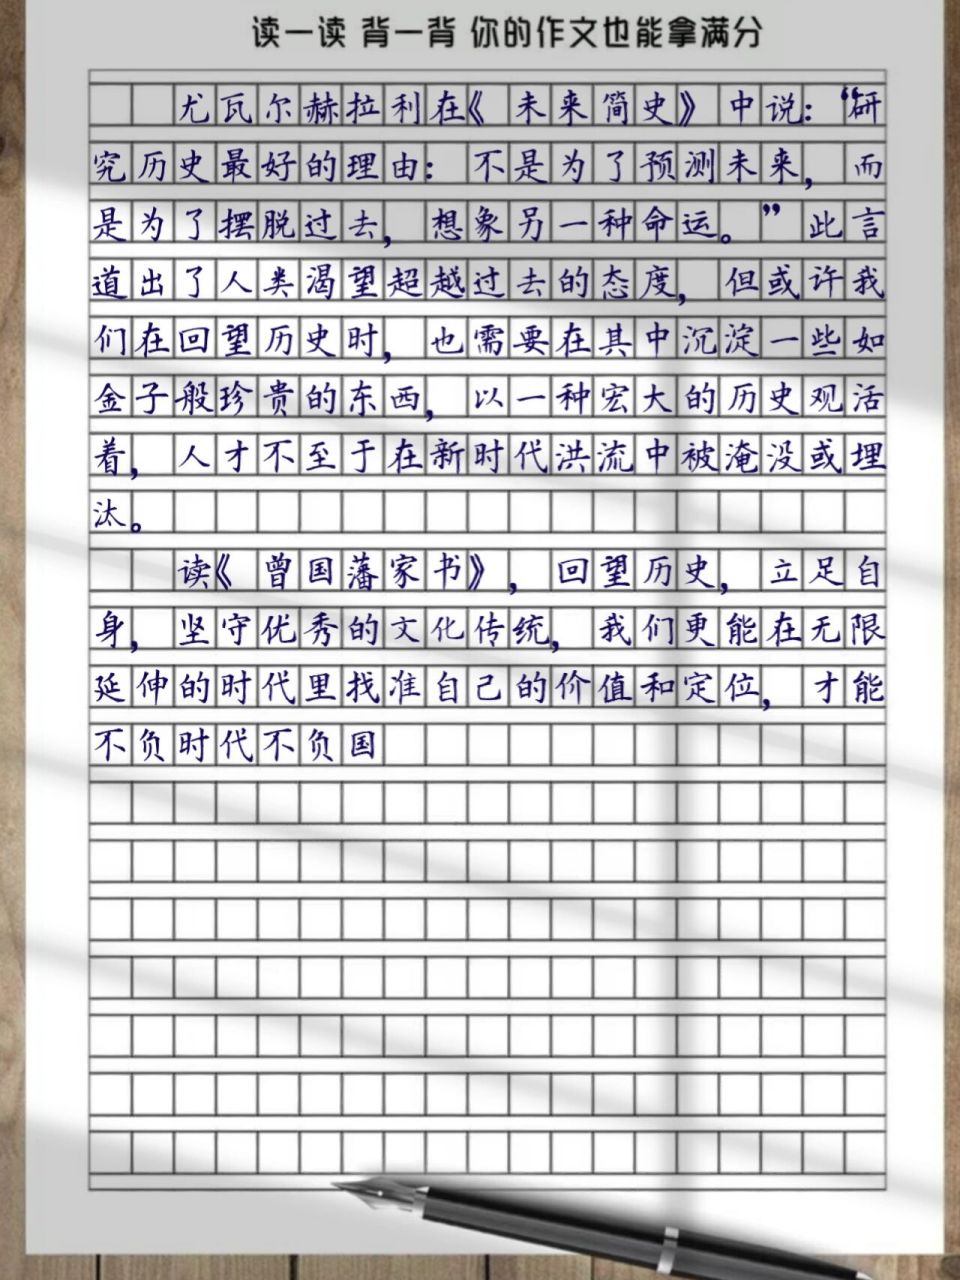 读一读 背一背 你的作文也能拿满分
尤瓦尔赫拉利在《未来简史》中说：“研
究历史最好的理由：不是为了预测未来，而
是为了摆脱过去，想象另一种命运。”此言
道出了人类渴望超越过去的态度，但或许我
们在回望历史时，也需要在其中沉淀一些如
金子般珍贵的东西，以一种宏大的历史观活
着，人才不至于在新时代洪流中被淹没或埋
汰。
读《曾国藩家书》，回望历史，立足自
身，坚守优秀的文化传统，我们更能在无限
延伸的时代里找准自己的价值和定位，才能
不负时代不负国